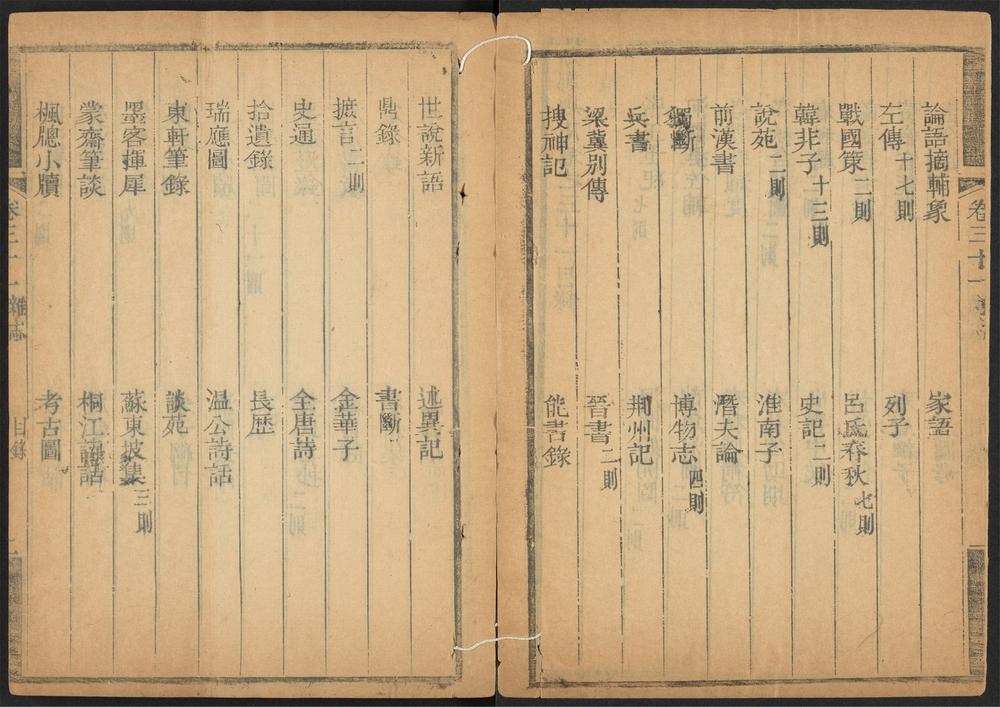 卷三十一
論語摘輔象 家語
左傳十七則 列子
戰國策二則 呂氏春秋七則
韓非子十三則 史記二則
說苑二則 淮南子
前漢書 潛夫論
獨斷 博物志四則
兵書 荆州記
梁冀別傳 晉書二則
搜神記 能書錄
世說新語 述異記
鼎錄 書斷
摭言二則 金華子
史通 全唐詩
拾遺錄 長歷
瑞應圖 温公詩話
東軒筆錄 談苑
墨客揮犀 蘇東坡集三則
蒙齋筆談 桐江詩話
楓牕小牘 考古圖
卷三十一 雜志 目錄